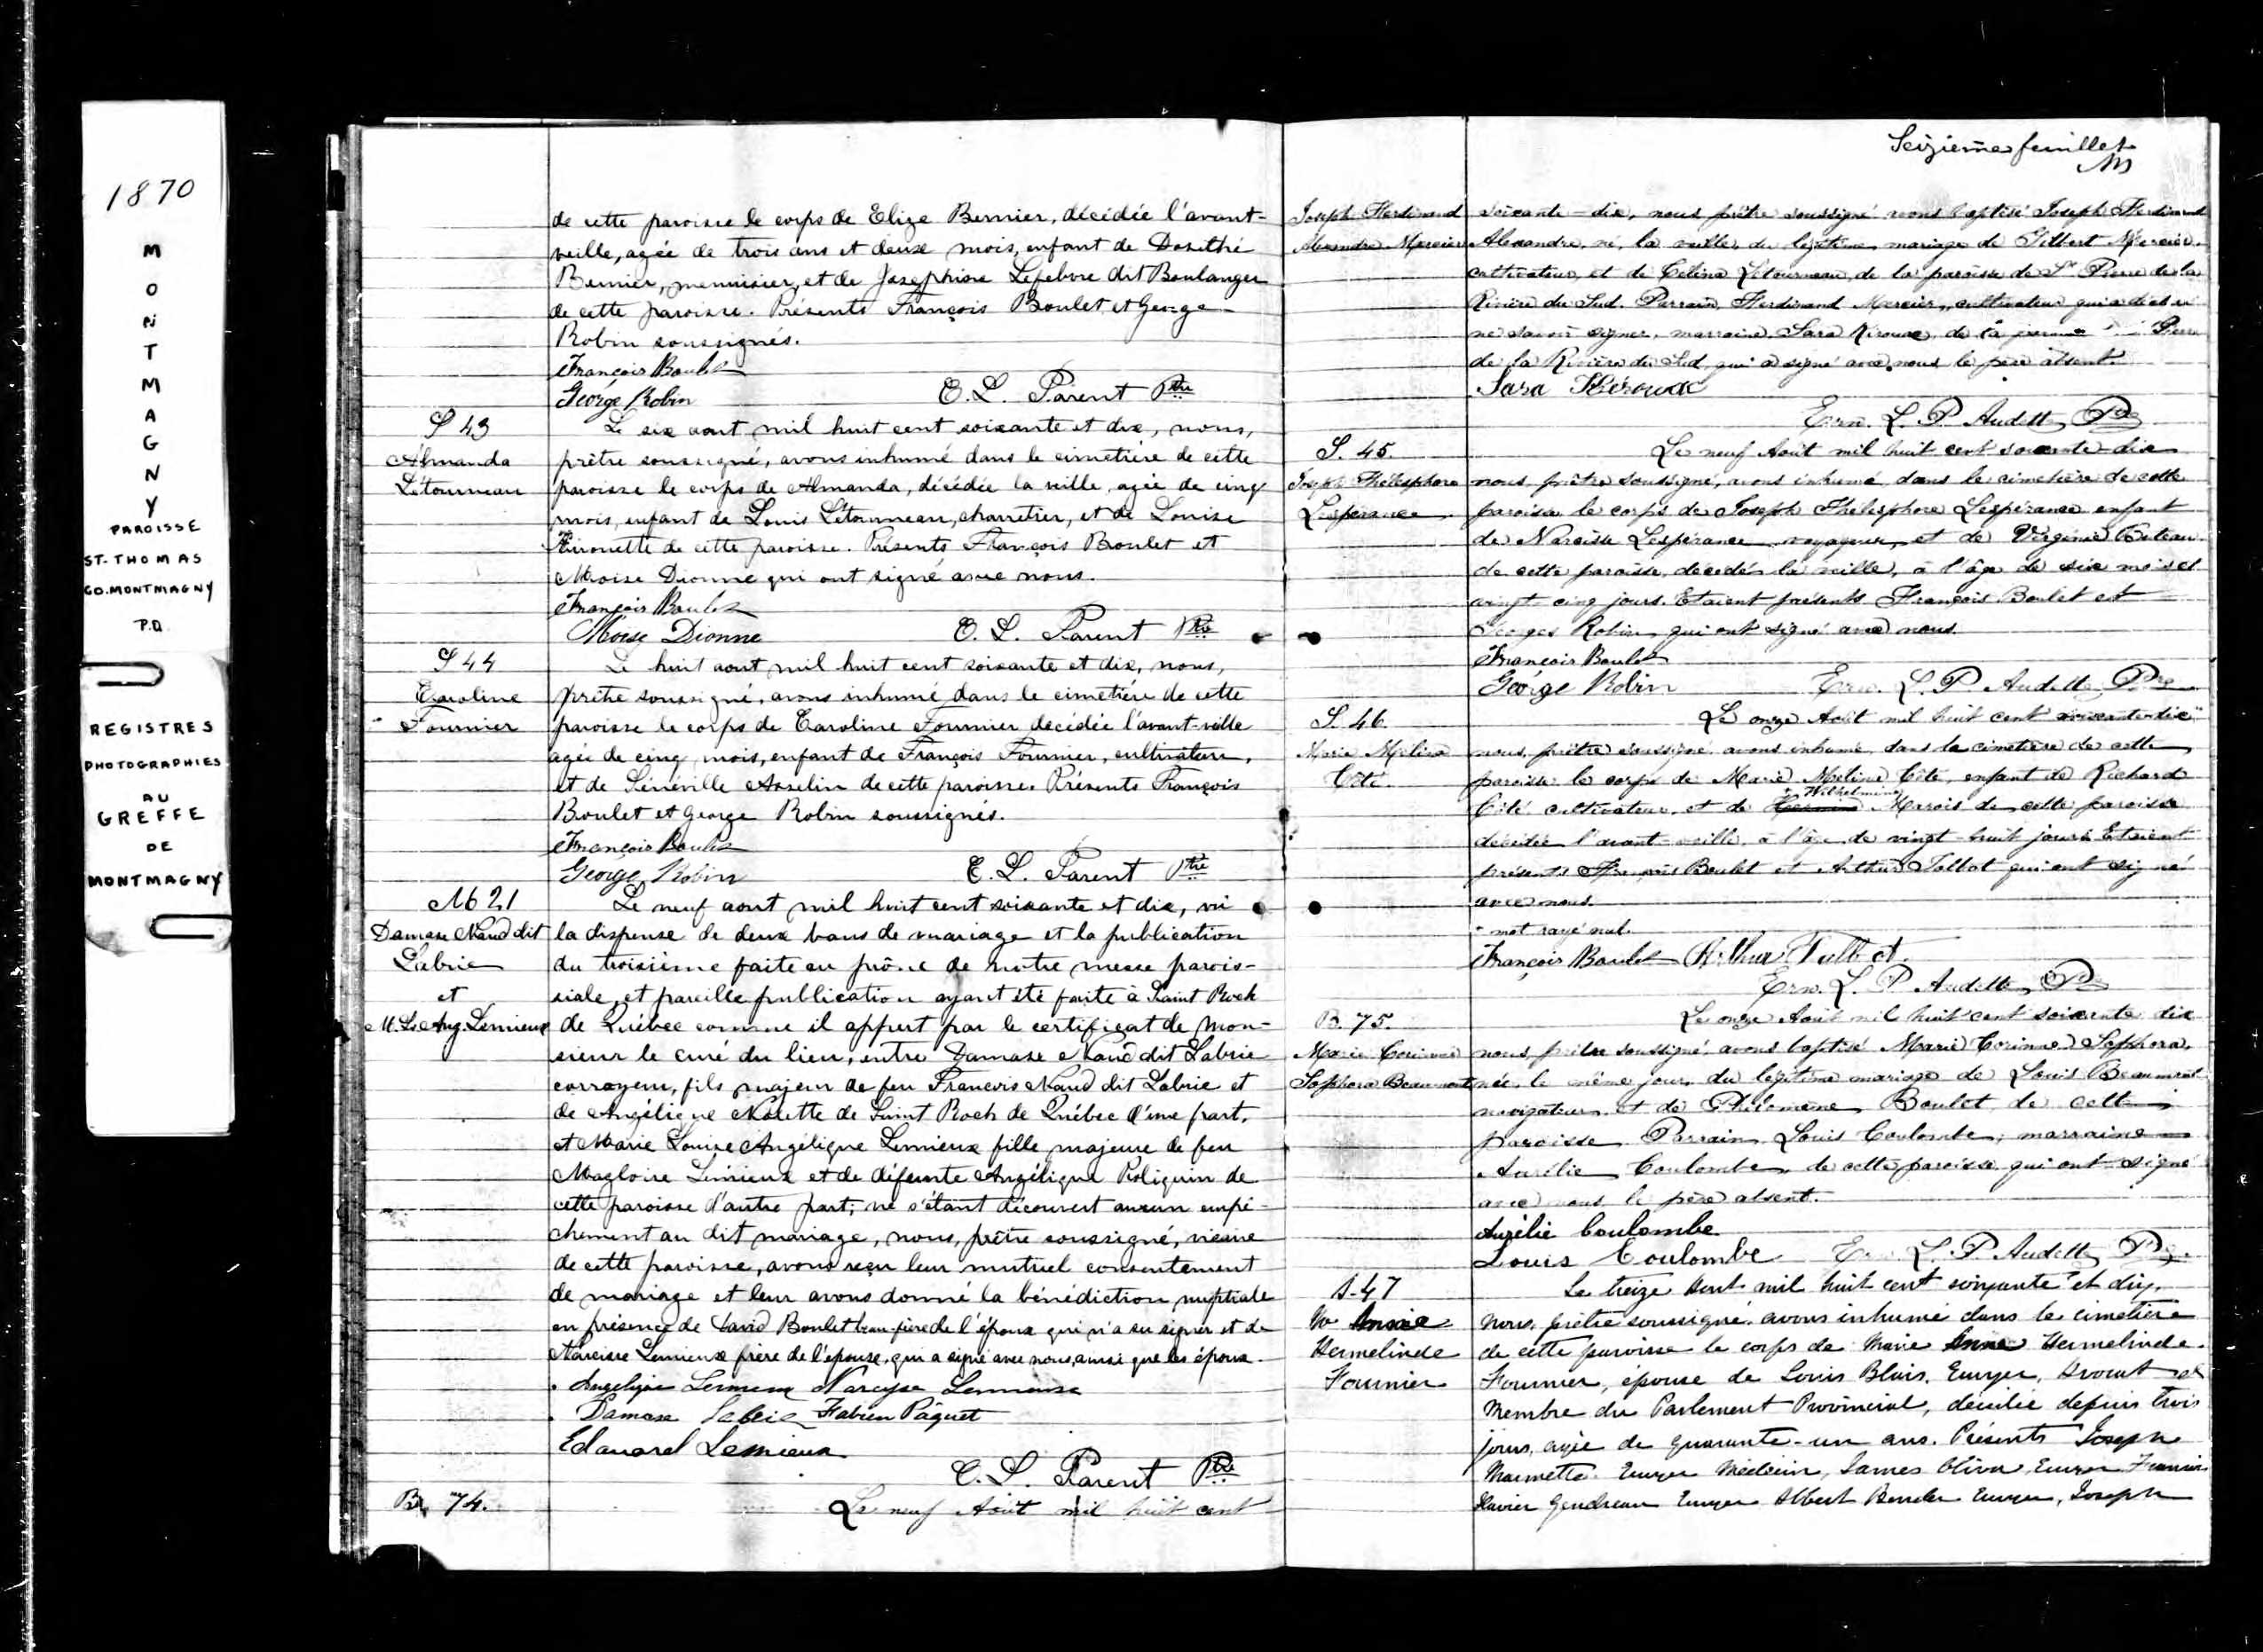 1870
MONTMAGNY
PAROISSE
ST-THOMAS
CO. MONTMAGNY
P.Q.
REGISTRES
PHOTOGRAPHIES
AU
GREFFE
DE
MONTMAGNY
de cette paroisse le corps de Elize Bernier, décédée l'avant-
veille, agée de trois ans et deux mois, enfant de Dosithé
Bernier, menuisier, et de Josephine Lefebvre dit Boulanger
de cette paroisse. Présents François Boulet et George
Robin soussignés.
François Boulet
George Robin E. L. Parent Ptre
S 43
Almanda
Létourneau
Le six aout mil huit cent soixante et dix, nous,
prêtre soussigné, avons inhumé dans le cimetière de cette
paroisse le corps de Almanda, décédée la veille, agée de cinq
mois, enfant de Louis Létourneau, charretier, et de Louise
de cette paroisse. Présents François Boulet et
Moise Dionne qui ont signé avec nous.
François Boulet
Moise Dionne E. L. Parent Ptre
S 44
Caroline
Fournier
Le huit aout mil huit cent soixante et dix, nous,
prêtre soussigné, avons inhumé dans le cimetière de cette
paroisse le corps de Caroline Fournier decédée l'avant-veille
agée de cinq mois, enfant de François Fournier, cultivateur,
et de Asselin de cette paroisse. Présents François
Boulet et George Robin soussignés.
François Boulet
George Robin E. L. Parent Ptre
M 21
Damase Naud dit
Labrie
et
M. Ls Ang. Lemieux
Le neuf aout mil huit cent soixante et dix, vu
la dispense de deux bans de mariage et la publication
du troisième faite au prône de notre messe parois-
siale, et pareille publication ayant été faite à Saint Roch
de Québec comme il appert par le certificat de mon-
sieur le curé du lieu, entre Damase Naud dit Labrie
corroyeur, fils majeur de feu François Naud dit Labrie et
de Angélique Nolette de Saint Roch de Québec d'une part,
et Marie Louise Angélique Lemieux fille majeure de feu
Magloire Lémieux et de défunte Angélique Poliquin de
cette paroisse d'autre part; ne s'étant découvert aucun empê-
chement au dit mariage, nous, prêtre soussigné, vicaire
de cette paroisse, avons reçu leur mutuel consentement
de mariage et leur avons donné la bénédiction nuptiale
en présence de David Boulet beau-père de l'époux qui n'a su signer et de
Narcisse Lemieux frère de l'epouse, qui a signé avec nous, ainsi que les époux.
Angelique Lemieux Narcysse Lemieux
Damase Labrie Fabien Pâquet
Edouard Lemieux
E. L. Parent Ptre
B. 74.
Le neuf Août mil huit cent
Seizième feuillet
Joseph Ferdinand
Alexandre Mercier
soixante-dix, nous prêtre soussigné avons baptisé Joseph Ferdinand
Alexandre, né, la veille, du légitime mariage de Gilbert Mercier,
cultivateur, et de Celina Létourneau, de la paroisse de St Pierre de la
Rivière du Sud. Parrain, Ferdinand Mercier, cultivateur qui a déclaré
ne savoir signer, marraine Sara Kirouac, de la Pierre
de la Rivière du Sud, qui a signé avec nous, le père absent.
Sara Kérouac
Ern. L. P. Audette Ptre
S. 45.
Joseph Thélesphore
Lespérance
Le neuf Août mil huit cent soixante-dix
nous, prêtre soussigné, avons inhumé, dans le cimetière de cette
paroisse le corps de Joseph Thélesphore Lespérance enfant
de Narcisse Lespérance, voyageur, et de Virginie
de cette paroisse, décédé la veille, à l'âge de six mois et
vingt-cinq jours. Etaient présents François Boulet et
Georges Robin, qui ont signé avec nous.
François Boulet
George Robin Ern. L. P. Audette Ptre
S. 46.
Marie Mélina
Côté.
Le onze Août mil huit cent soixante-dix
nous, prêtre soussigné, avons inhumé, dans le cimetière de cette
paroisse le corps de Marie Mélina Côté, enfant de Richard
Côté cultivateur, et de Wilhelmine Marois de cette paroisse
décédée l'avant-veille, à l'âge de vingt-huit jours. Etaient
présents François Boulet et Arthur Talbot qui ont signé
avec nous.
mot rayé nul.
François Boulet Arthur Talbot
Ern. L. P. Audette Ptre
B. 75.
Marie Corinne
Sophora Beaumont
Le onze Août mil huit cent soixante dix
nous, prêtre soussigné, avons baptisé Marie Corinne Sophora,
née, le même jour, du légitime mariage de Louis Beaumont
navigateur, et de Philomène Boulet de cette
paroisse. Parrain Louis Coulombe, marraine
Aurélie Coulombe, de cette paroisse qui ont signé
avec nous, le père absent.
Aurélie Coulombe
Louis Coulombe Ern. L. P. Audette Ptre
S-47
Me Annie
Hermelinde
Fournier
Le treize Aout mil huit cent soixante et dix,
nous, prêtre soussigné, avons inhumé dans le cimetière
de cette paroisse le corps de Marie Anne Hermelinde
Fournier, épouse de Louis Blais, Ecuyer, Avocat et
Membre du Parlement Provincial, décédée depuis trois
jours, agée de quarante-un ans. Présents Joseph
Marmette Ecuyer Médecin, James Oliva, Ecuyer Francois
Xavier Gendreau Ecuyer Albert Bender Ecuyer, Joseph